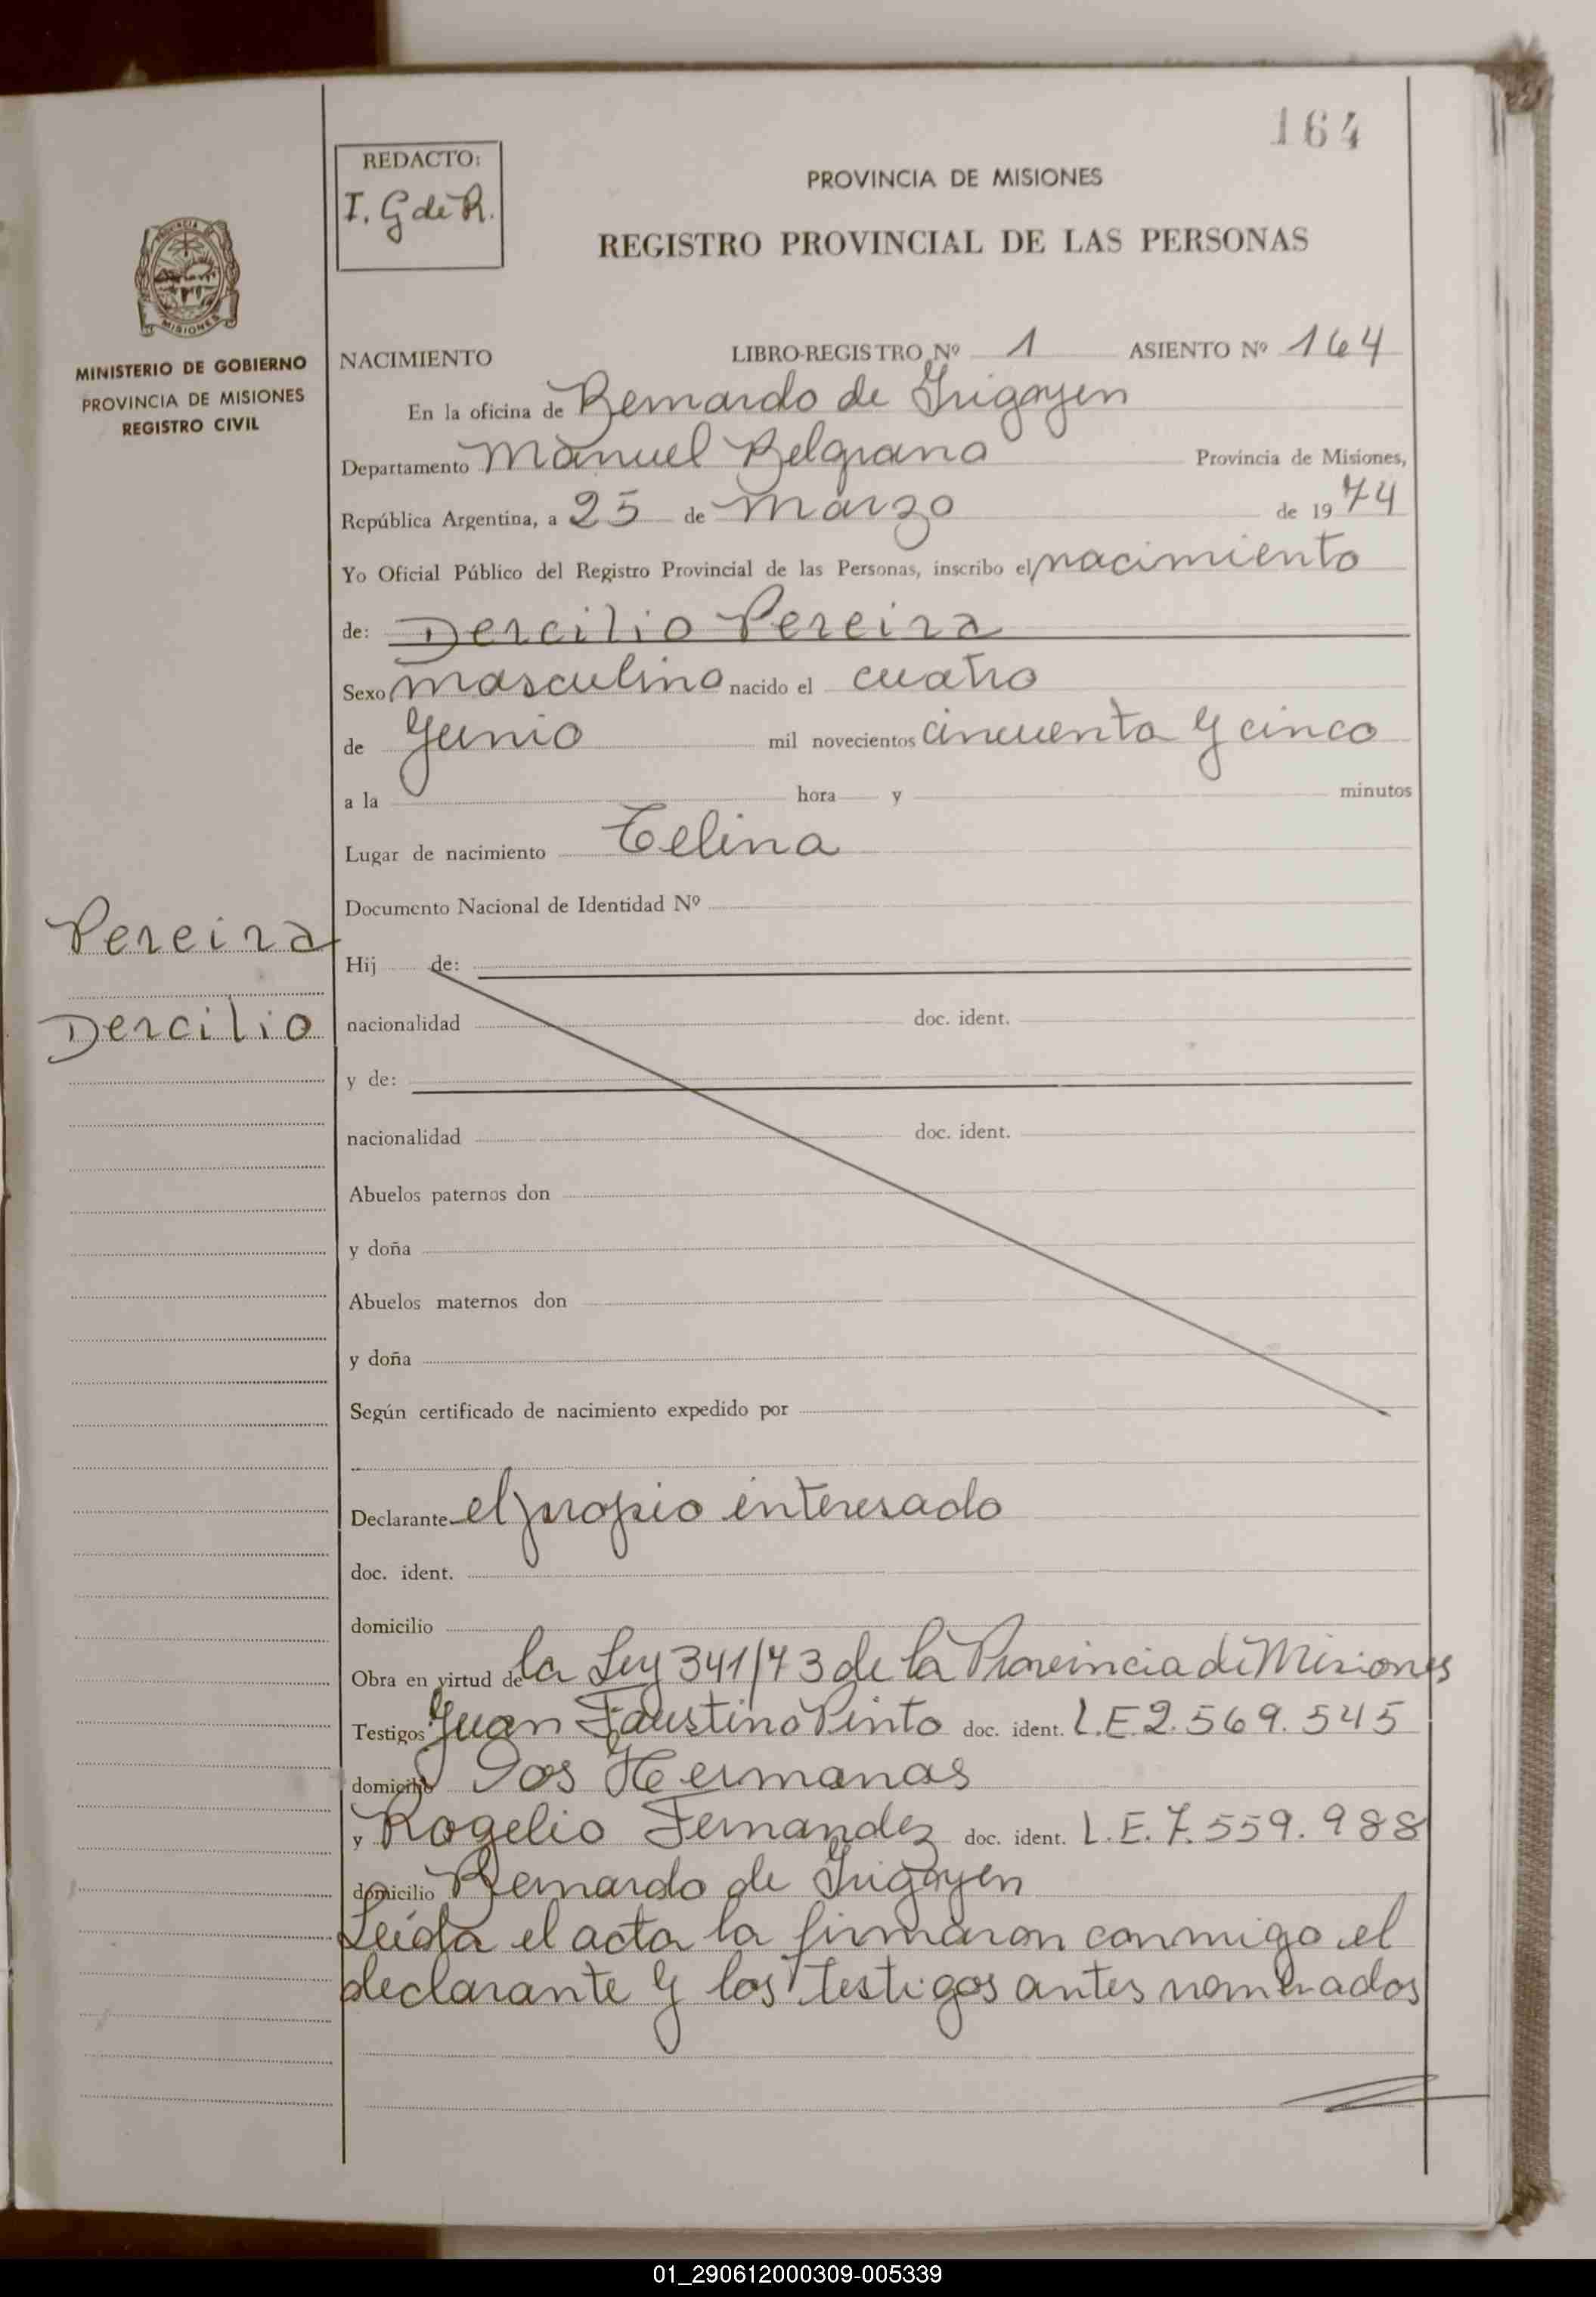 164
REDACTO:
I. G de R.
PROVINCIA DE MISIONES
REGISTRO PROVINCIAL DE LAS PERSONAS
PROVINCIA DE
MISIONES
MINISTERIO DE GOBIERNO
PROVINCIA DE MISIONES
REGISTRO CIVIL
NACIMIENTO LIBRO-REGISTRO Nº 1 ASIENTO Nº 164
En la oficina de Bernardo de Irigoyen
Departamento Manuel Belgrano Provincia de Misiones,
República Argentina, a 25 de Marzo de 1974
Yo Oficial Público del Registro Provincial de las Personas, inscribo el nacimiento
de: Dercilio Pereira
Sexo masculino nacido el cuatro
de Junio mil novecientos cincuenta y cinco
a la hora y minutos
Lugar de nacimiento Celina
Documento Nacional de Identidad Nº
Pereira
Dercilio
Hij de:
nacionalidad doc. ident.
y de:
nacionalidad doc. ident.
Abuelos paternos don
y doña
Abuelos maternos don
y doña
Según certificado de nacimiento expedido por
Declarante el propio interesado
doc. ident.
domicilio
Obra en virtud de la Ley 341/73 de la Provincia de Misiones
Testigos Juan Faustino Pinto doc. ident. L.E. 2.569.545
domicilio Dos Hermanas
y Rogelio Fernandez doc. ident. L.E. 7.559.988
domicilio Bernardo de Irigoyen
Leida el acta la firmaron conmigo el
declarante y los testigos antes nombrados
01_290612000309-005339